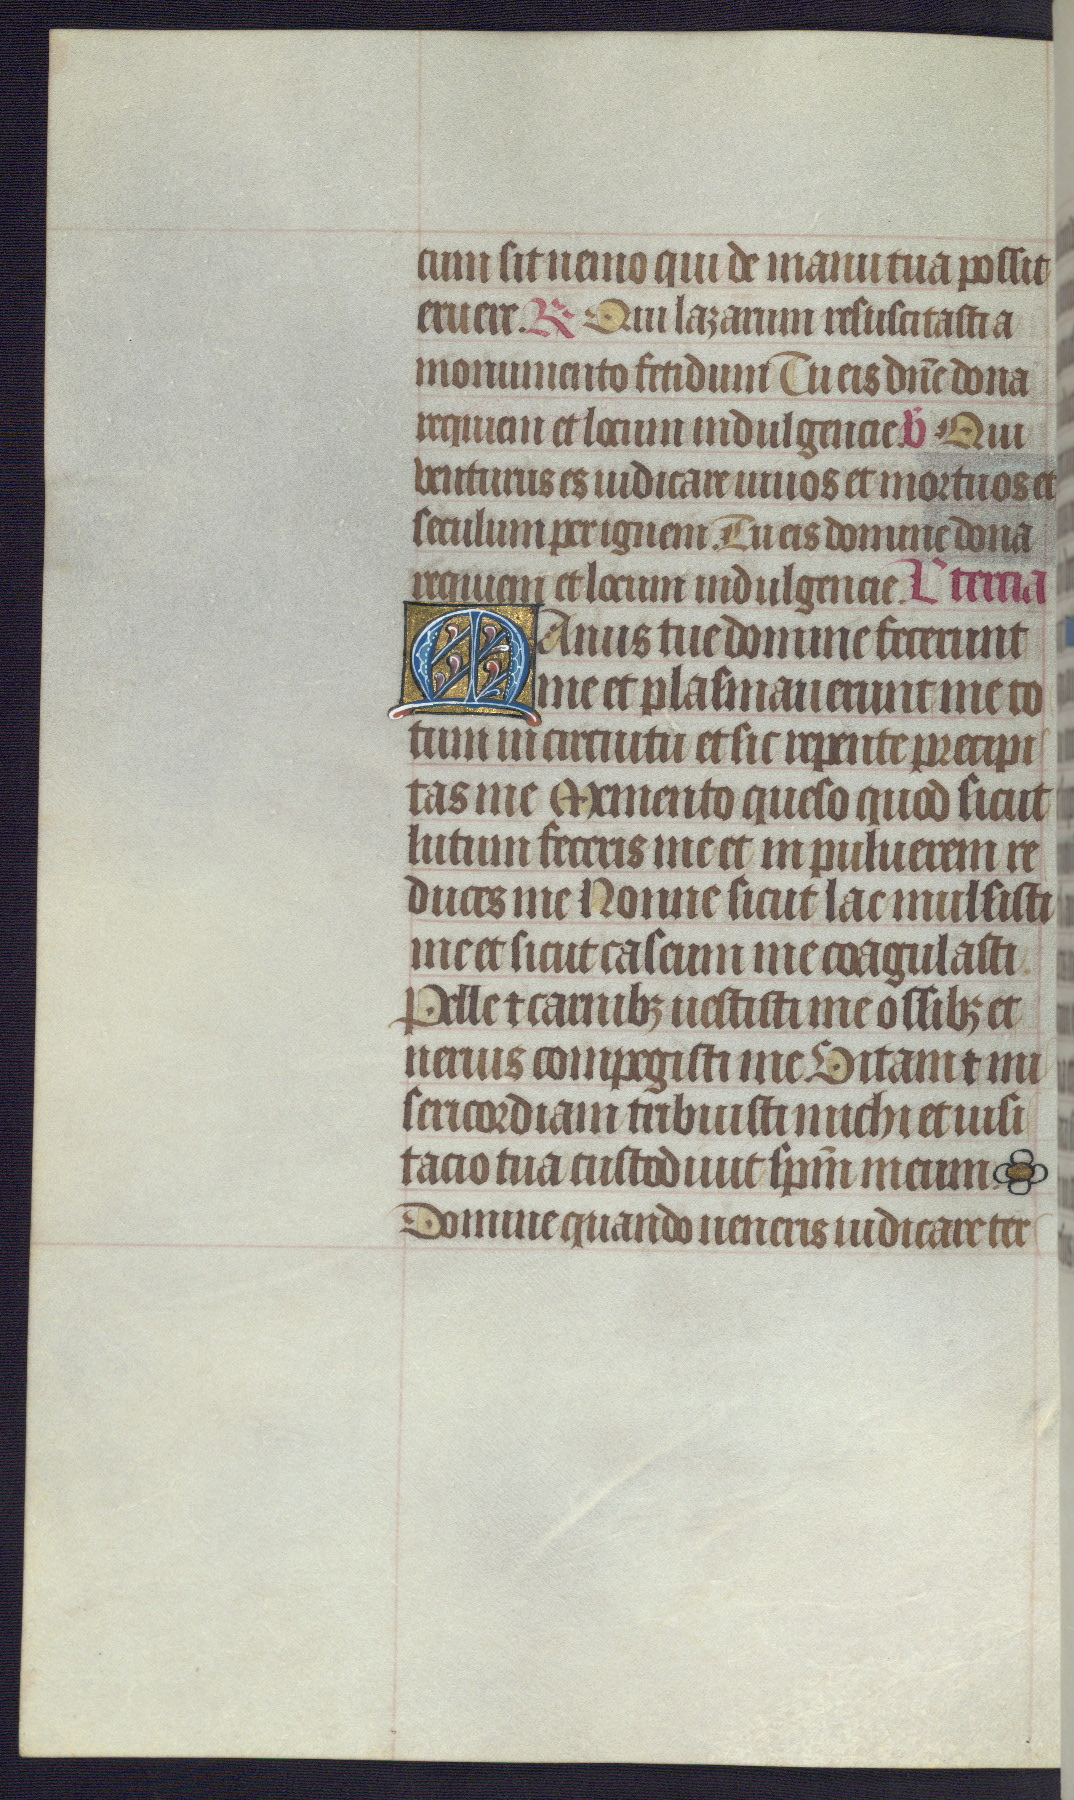 cum sit nemo qui de manu tua possit
eruere. R Qui lazarum resuscitasti a
monumento fetidum Tu eis dñe dona
requiem et locum indulgencie. v̄ Qui
venturus es iudicare uiuos et mortuos et
seculum per ignem. Tu eis domine dona
requiem et locum indulgencie. L' tercia
Manus tue domine fecerunt
me et plasmauerunt me to
tum in circuitu et sic repente precipi
tas me Memento queso quod sicut
lutum feceris me et in puluerem re
duces me Nonne sicut lac mulsisti
me et sicut caseum me coagulasti.
Pelle ⁊ carnibꝫ uestisti me ossibꝫ et
neruis compegisti me Vitam ⁊ mi
sericordiam tribuisti michi et uisi
tacio tua custodiuit sp̄m meum.
Domine quando ueneris iudicare ter